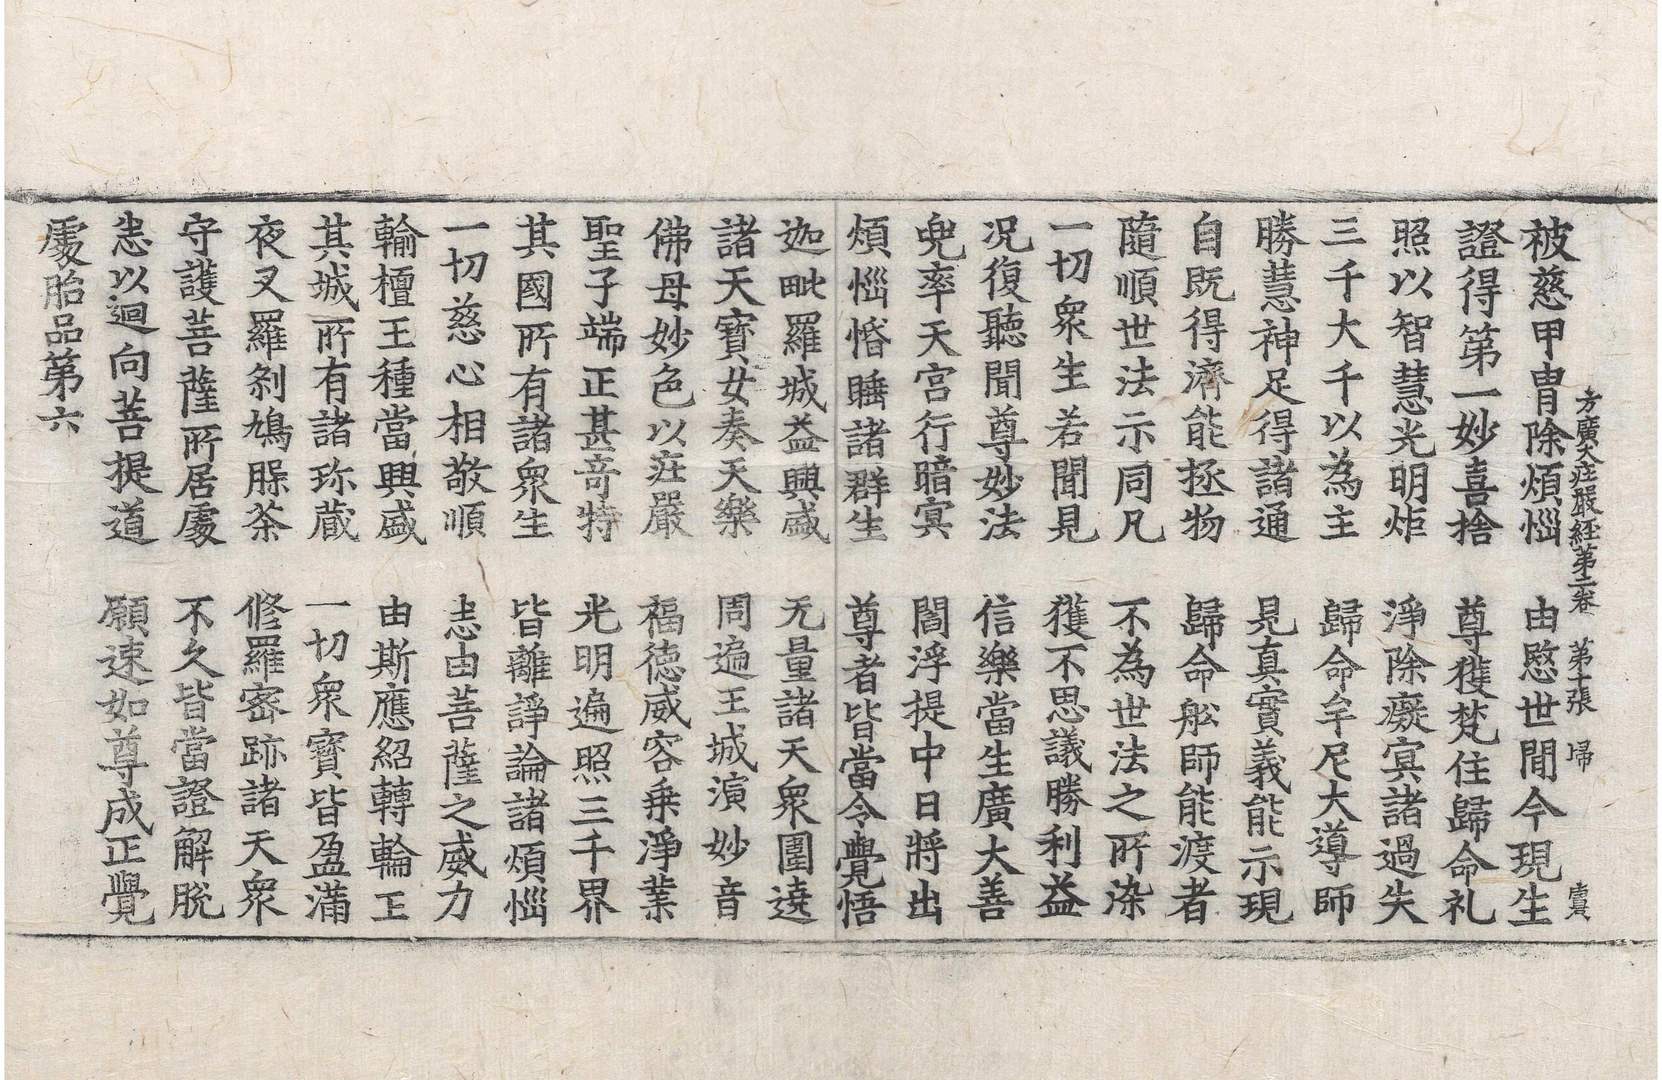 方廣大庄嚴經第二卷 第十張 歸
被慈甲冑除煩惱 由愍世間今現生
證得第一妙喜捨 尊獲梵住歸命礼
照以智慧光明炬 淨除癡冥諸過失
三千大千以為主 歸命牟尼大導師
勝慧神足得諸通 見真實義能示現
自既得濟能拯物 歸命舩師能渡者
隨順世法示同凡 不為世法之所染
一切衆生若聞見 獲不思議勝利益
况復聽聞尊妙法 信樂當生廣大善
兜率天宮行暗冥 閻浮提中日將出
煩惱惛睡諸群生 尊者皆當令覺悟
迦毗羅城益興盛 无量諸天衆圍遶
諸天寶女奏天樂 周遍王城演妙音
佛母妙色以庄嚴 福德威容乗淨業
聖子端正甚奇特 光明遍照三千界
其國所有諸衆生 皆離諍論諸煩惱
一切慈心相敬順 悉由菩薩之威力
輸檀王種當興盛 由斯應紹轉輪王
其城所有諸珎藏 一切衆寶皆盈滿
夜叉羅剎鳩膠荼 修羅密跡諸天衆
守護菩薩所居處 不久皆當證解脫
悉以迴向菩提道 願速如尊成正覺
處胎品第六